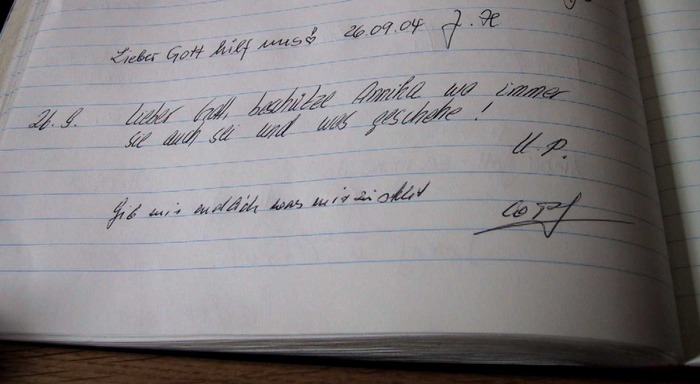 Lieber Gott hilf uns! 26.09.04 J. H
26.9. Lieber Gott, beschütze Annika wo immer
sie auch sei und was geschehe!
U. P.
Gib mir endlich was mir zusteht